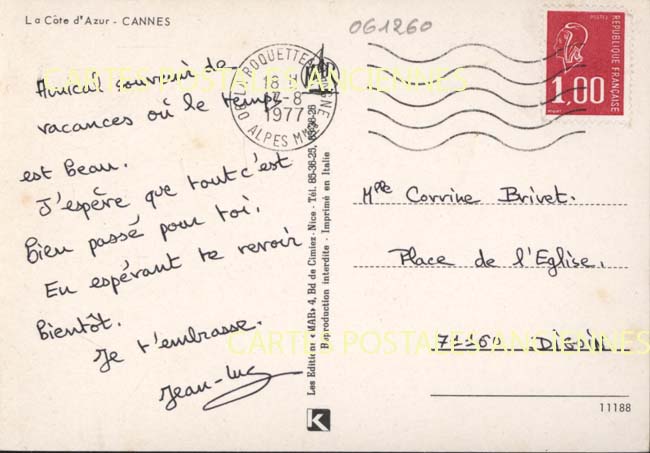 La Côte d'Azur - CANNES
061260
Amical souvenir de
vacances où le temps
est beau.
J'espère que tout c'est
bien passé pour toi.
En espérant te revoir
bientôt.
Je t'embrasse.
Jean-Luc
LA ROQUETTE
18 H
17-8
1977
06 ALPES MMES
Les Editions «MAR» 4, Bd de Cimiez - Nice - Tél. 85-36-25, 85-36-26
Reproduction interdite - Imprimé en Italie
K
POSTES
1,00
REPUBLIQUE FRANÇAISE
Mlle Corrine Brivet.
Place de l'Eglise.
71160 Digoin
11188
CARTES POSTALES ANCIENNES
CARTES POSTALES ANCIENNES